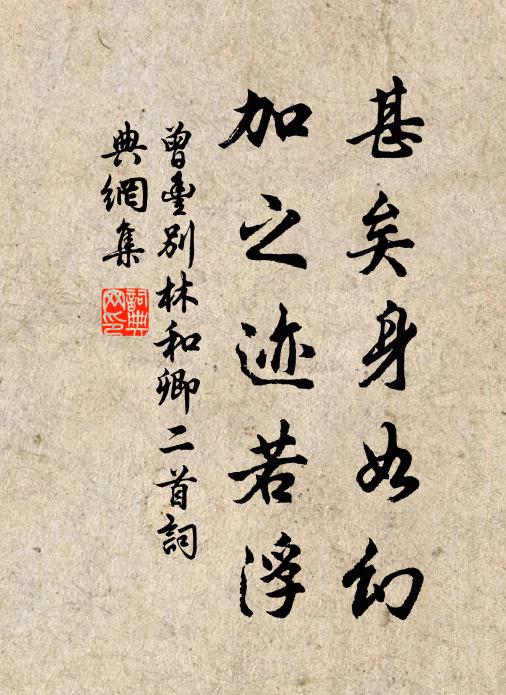 甚矣身如幻
加之迹若浮
曾丰别林和卿二首詞
典網集
詞典网印